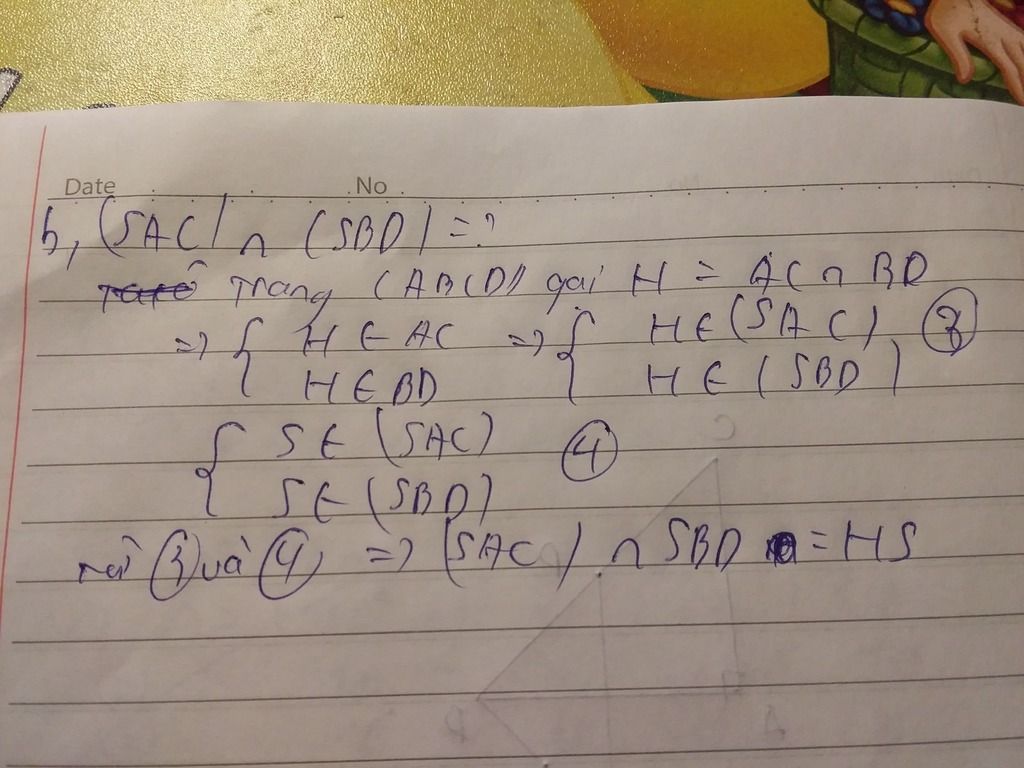 Date No
b, (SAC) ∩ (SBD) = ?
Trong (ABCD) gọi H = AC ∩ BD
=> { H ∈ AC => { H ∈ (SAC) ③
H ∈ BD H ∈ (SBD)
{ S ∈ (SAC) ④
S ∈ (SBD)
từ ③ và ④ => (SAC) ∩ SBD = HS
C
D A